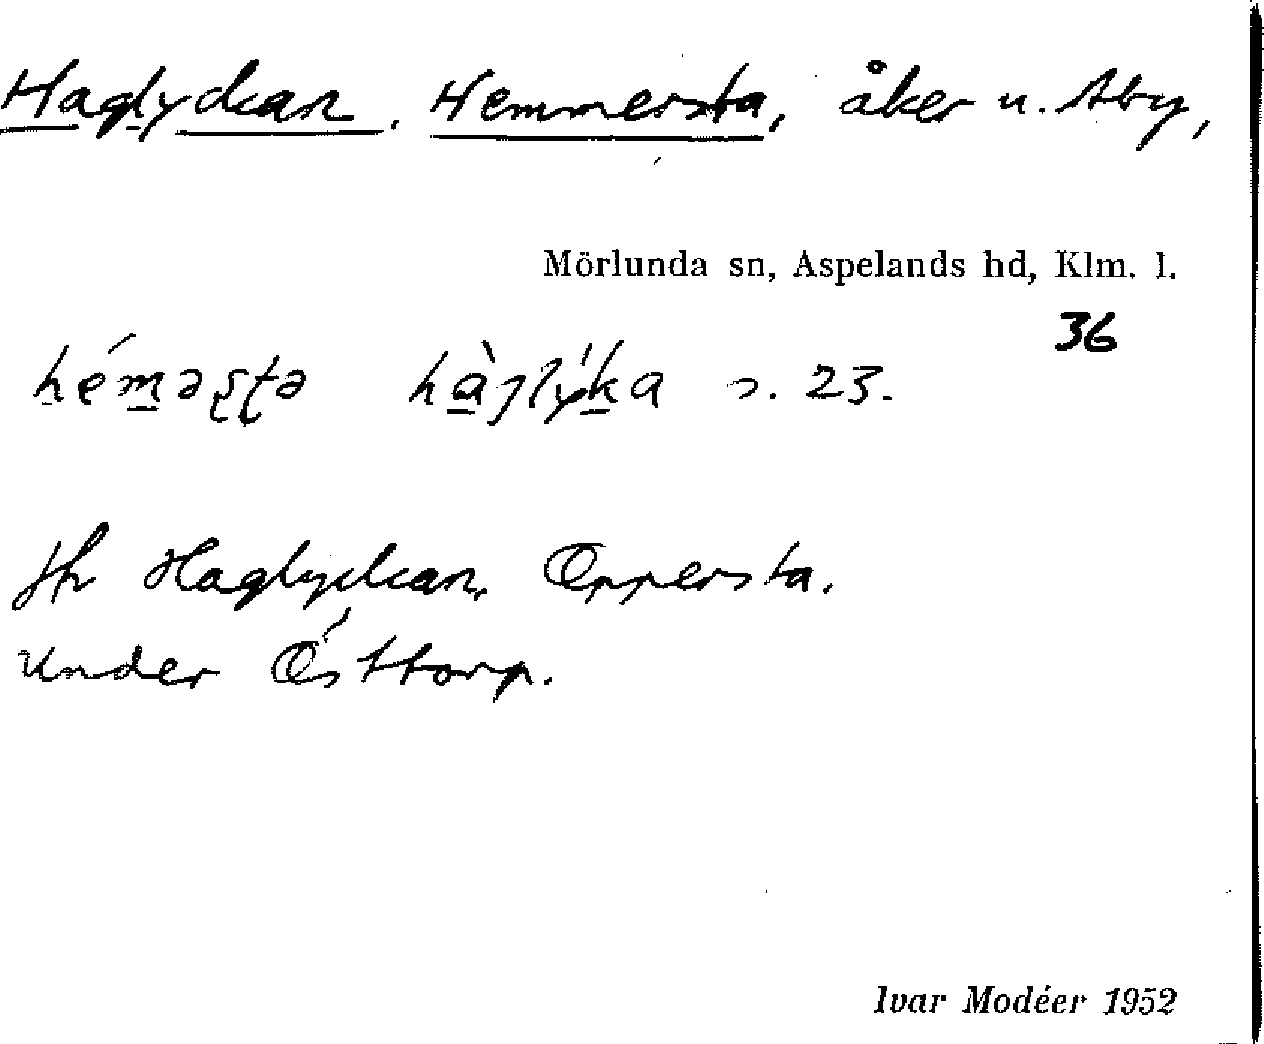 Haglyckan, Hemmersta, åker u. Åby,
Mörlunda sn, Aspelands hd, Klm. l.
36
s. 23.
Jfr Haglyckan, Öppersta.
Under Östtorp.
Ivar Modéer 1952